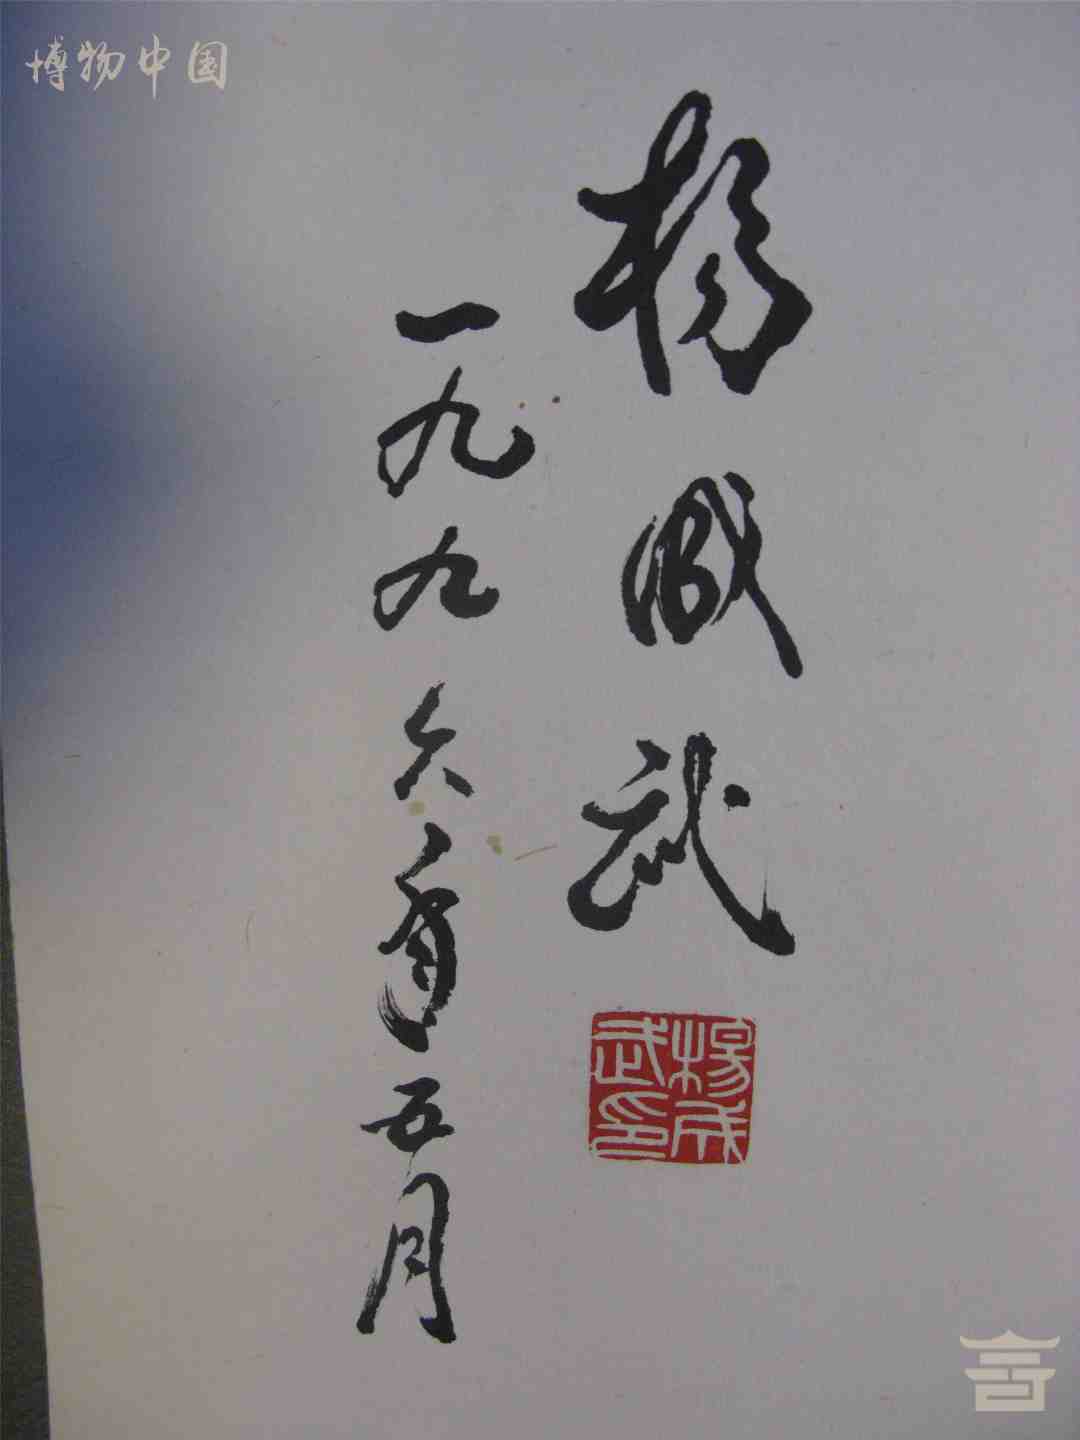 博物中国
杨成武
一九九六年五月
杨成
武印